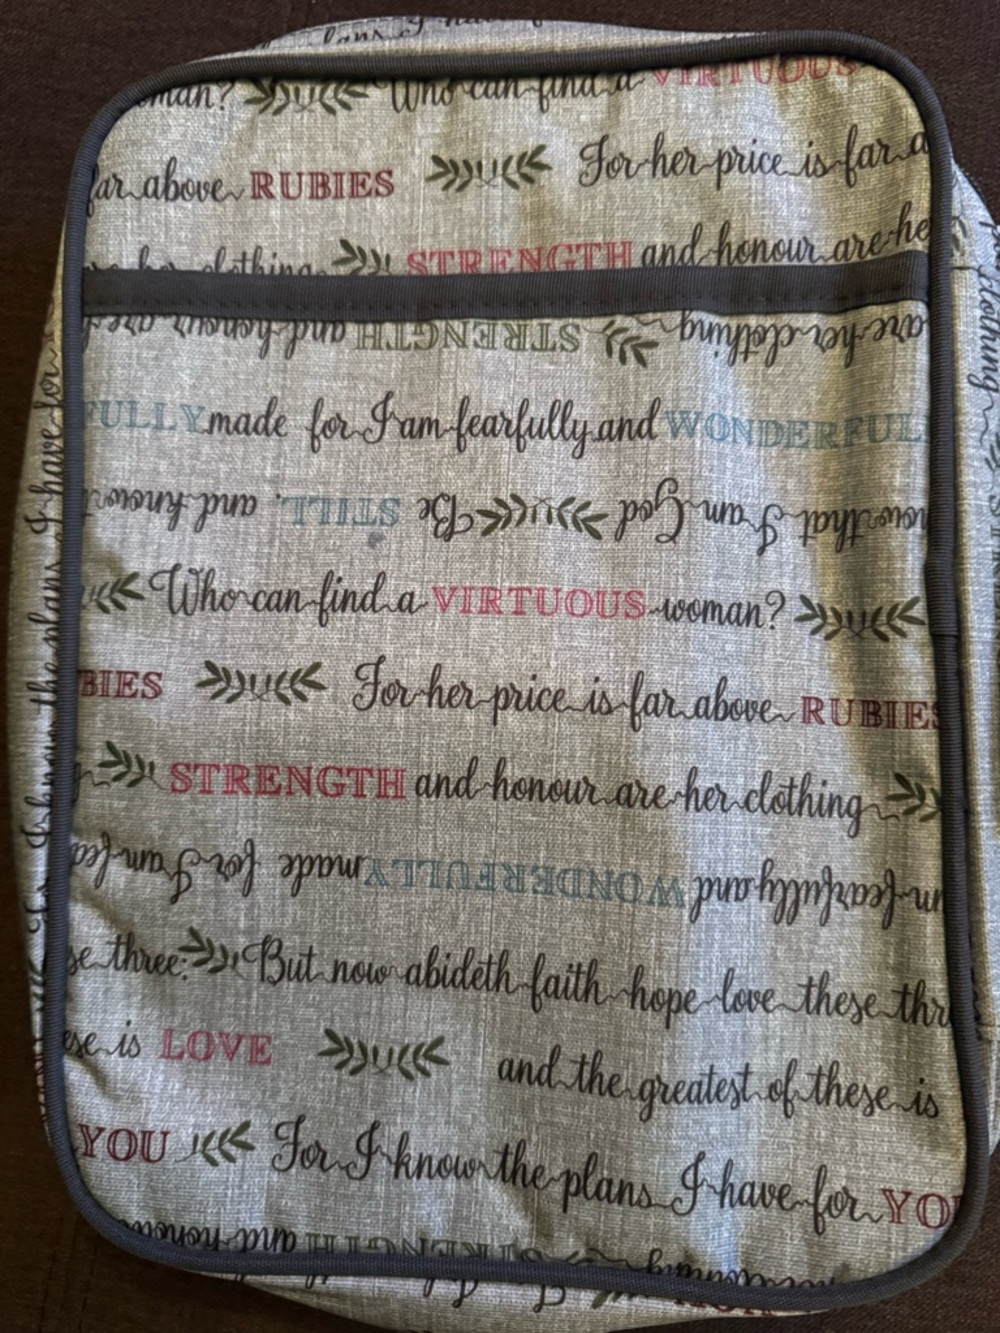 oman? Who can find a VIRTUOUS
far above RUBIES For her price is far a
clothing STRENGTH and honour are he
are her clothing STRENGTH and honour are
FULLY made for I am fearfully and WONDERFUL
now that I am God Be STILL, and know
Who can find a VIRTUOUS woman?
BIES For her price is far above RUBIES
STRENGTH and honour are her clothing
m fearfully and WONDERFULLY made for I am fea
se three: But now abideth faith hope love these thr
ese is LOVE and the greatest of these is
YOU For I know the plans I have for YOU
clothing STRENGTH and honour